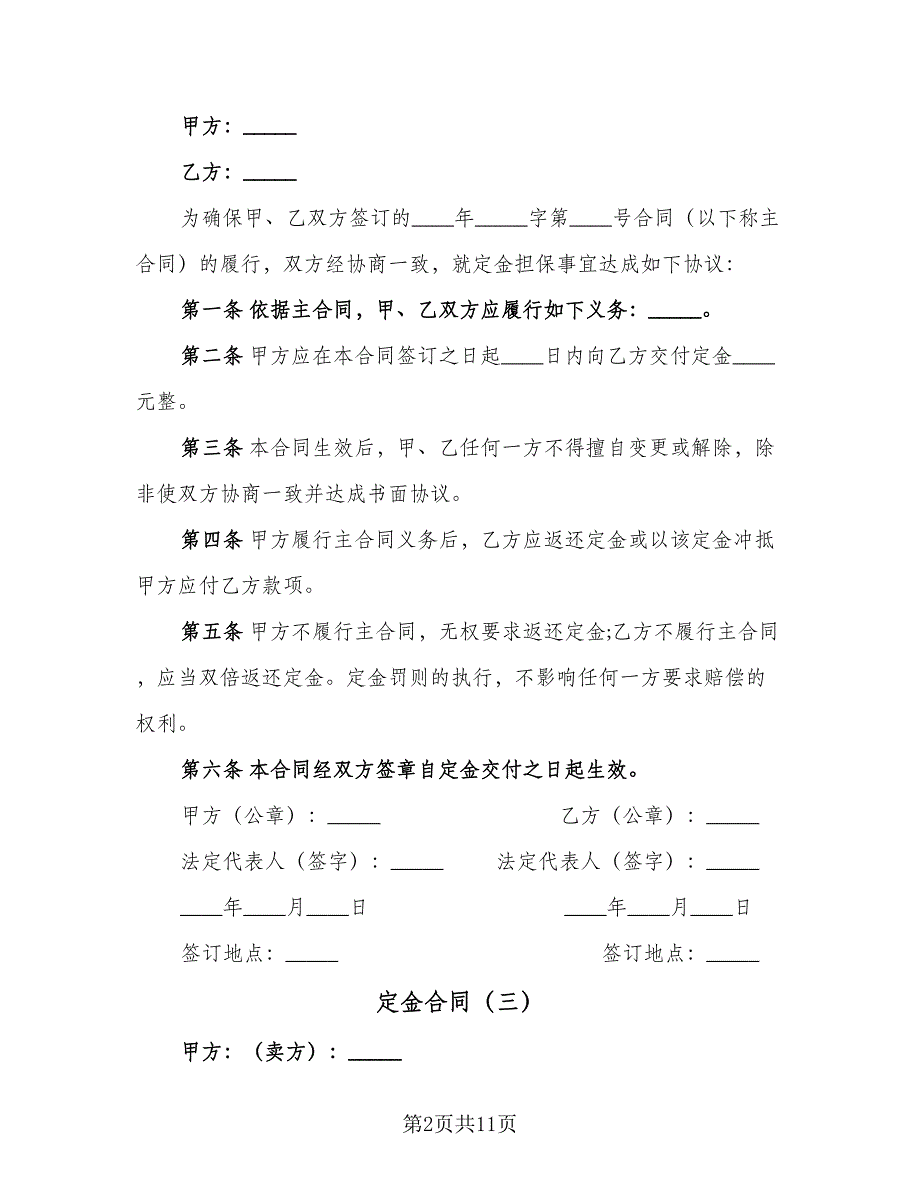 甲方：_____
乙方：_____
为确保甲、乙双方签订的____年_____字第____号合同（以下称主
合同）的履行，双方经协商一致，就定金担保事宜达成如下协议：
第一条 依据主合同，甲、乙双方应履行如下义务：_____。
第二条 甲方应在本合同签订之日起____日内向乙方交付定金____
元整。
第三条 本合同生效后，甲、乙任何一方不得擅自变更或解除，除
非使双方协商一致并达成书面协议。
第四条 甲方履行主合同义务后，乙方应返还定金或以该定金冲抵
甲方应付乙方款项。
第五条 甲方不履行主合同，无权要求返还定金;乙方不履行主合同
，应当双倍返还定金。定金罚则的执行，不影响任何一方要求赔偿的
权利。
第六条 本合同经双方签章自定金交付之日起生效。
甲方（公章）：_____ 乙方（公章）：_____
法定代表人（签字）：_____ 法定代表人（签字）：_____
____年____月____日 ____年____月____日
签订地点：_____ 签订地点：_____
定金合同（三）
甲方：（卖方）：_____
第2页共11页